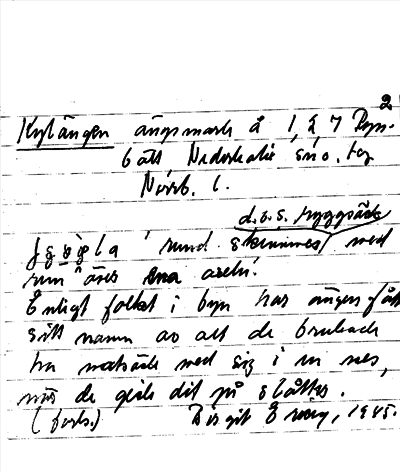 2
Kylängen ängsmark å 1, 2, 7 Byn.
6 ått Nederkalix sn o. tg
Norrb. l.
d.v.s. ryggsäck
rund skinnes med
rem över ena axeln.
Enligt folket i byn har ängen fått
sitt namn av att de brukade
ha matsäck med sig i en nes,
när de gick dit på slåtter.
(forts.) Birgit 1945.